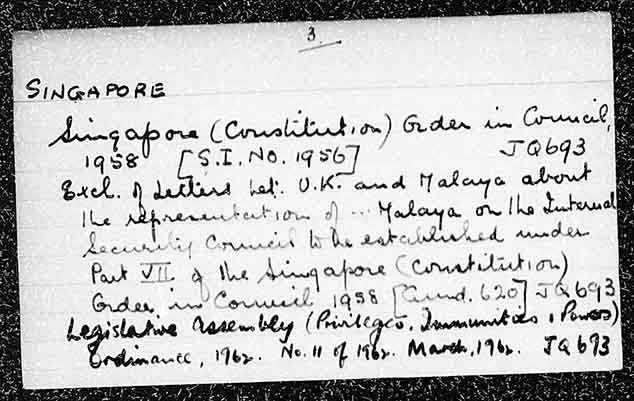 3.
SINGAPORE
Singapore (Constitution) Order in Council,
1958 [S.I. No. 1956] JQ693
Excl. of Letters bet. U.K. and Malaya about
the representation of ... Malaya on the Internal
Security Council to be established under
Part VII. of the Singapore (Constitution)
Order in Council 1958 [Cmnd. 620] JQ693
Legislative Assembly (Privileges, Immunities & Powers)
Ordinance, 1962. No. 11 of 1962. March, 1962. JQ693